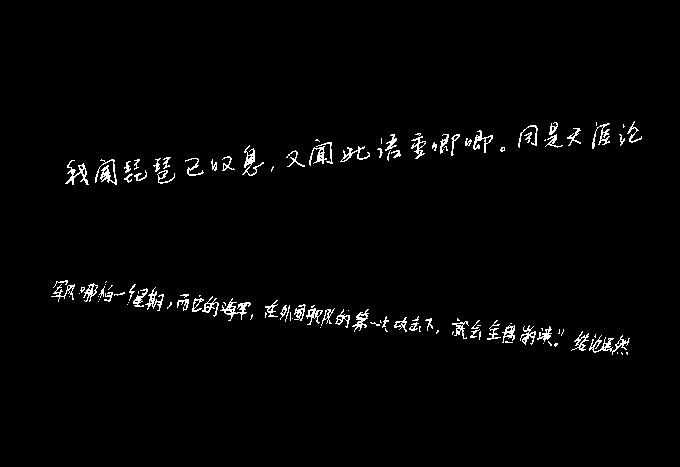 我闻琵琶已叹息，又闻此语重唧唧。同是天涯论
军队哪怕一个星期，而它的海军，在外国舰队的第一次攻击下，就会全部崩溃。”结论虽然